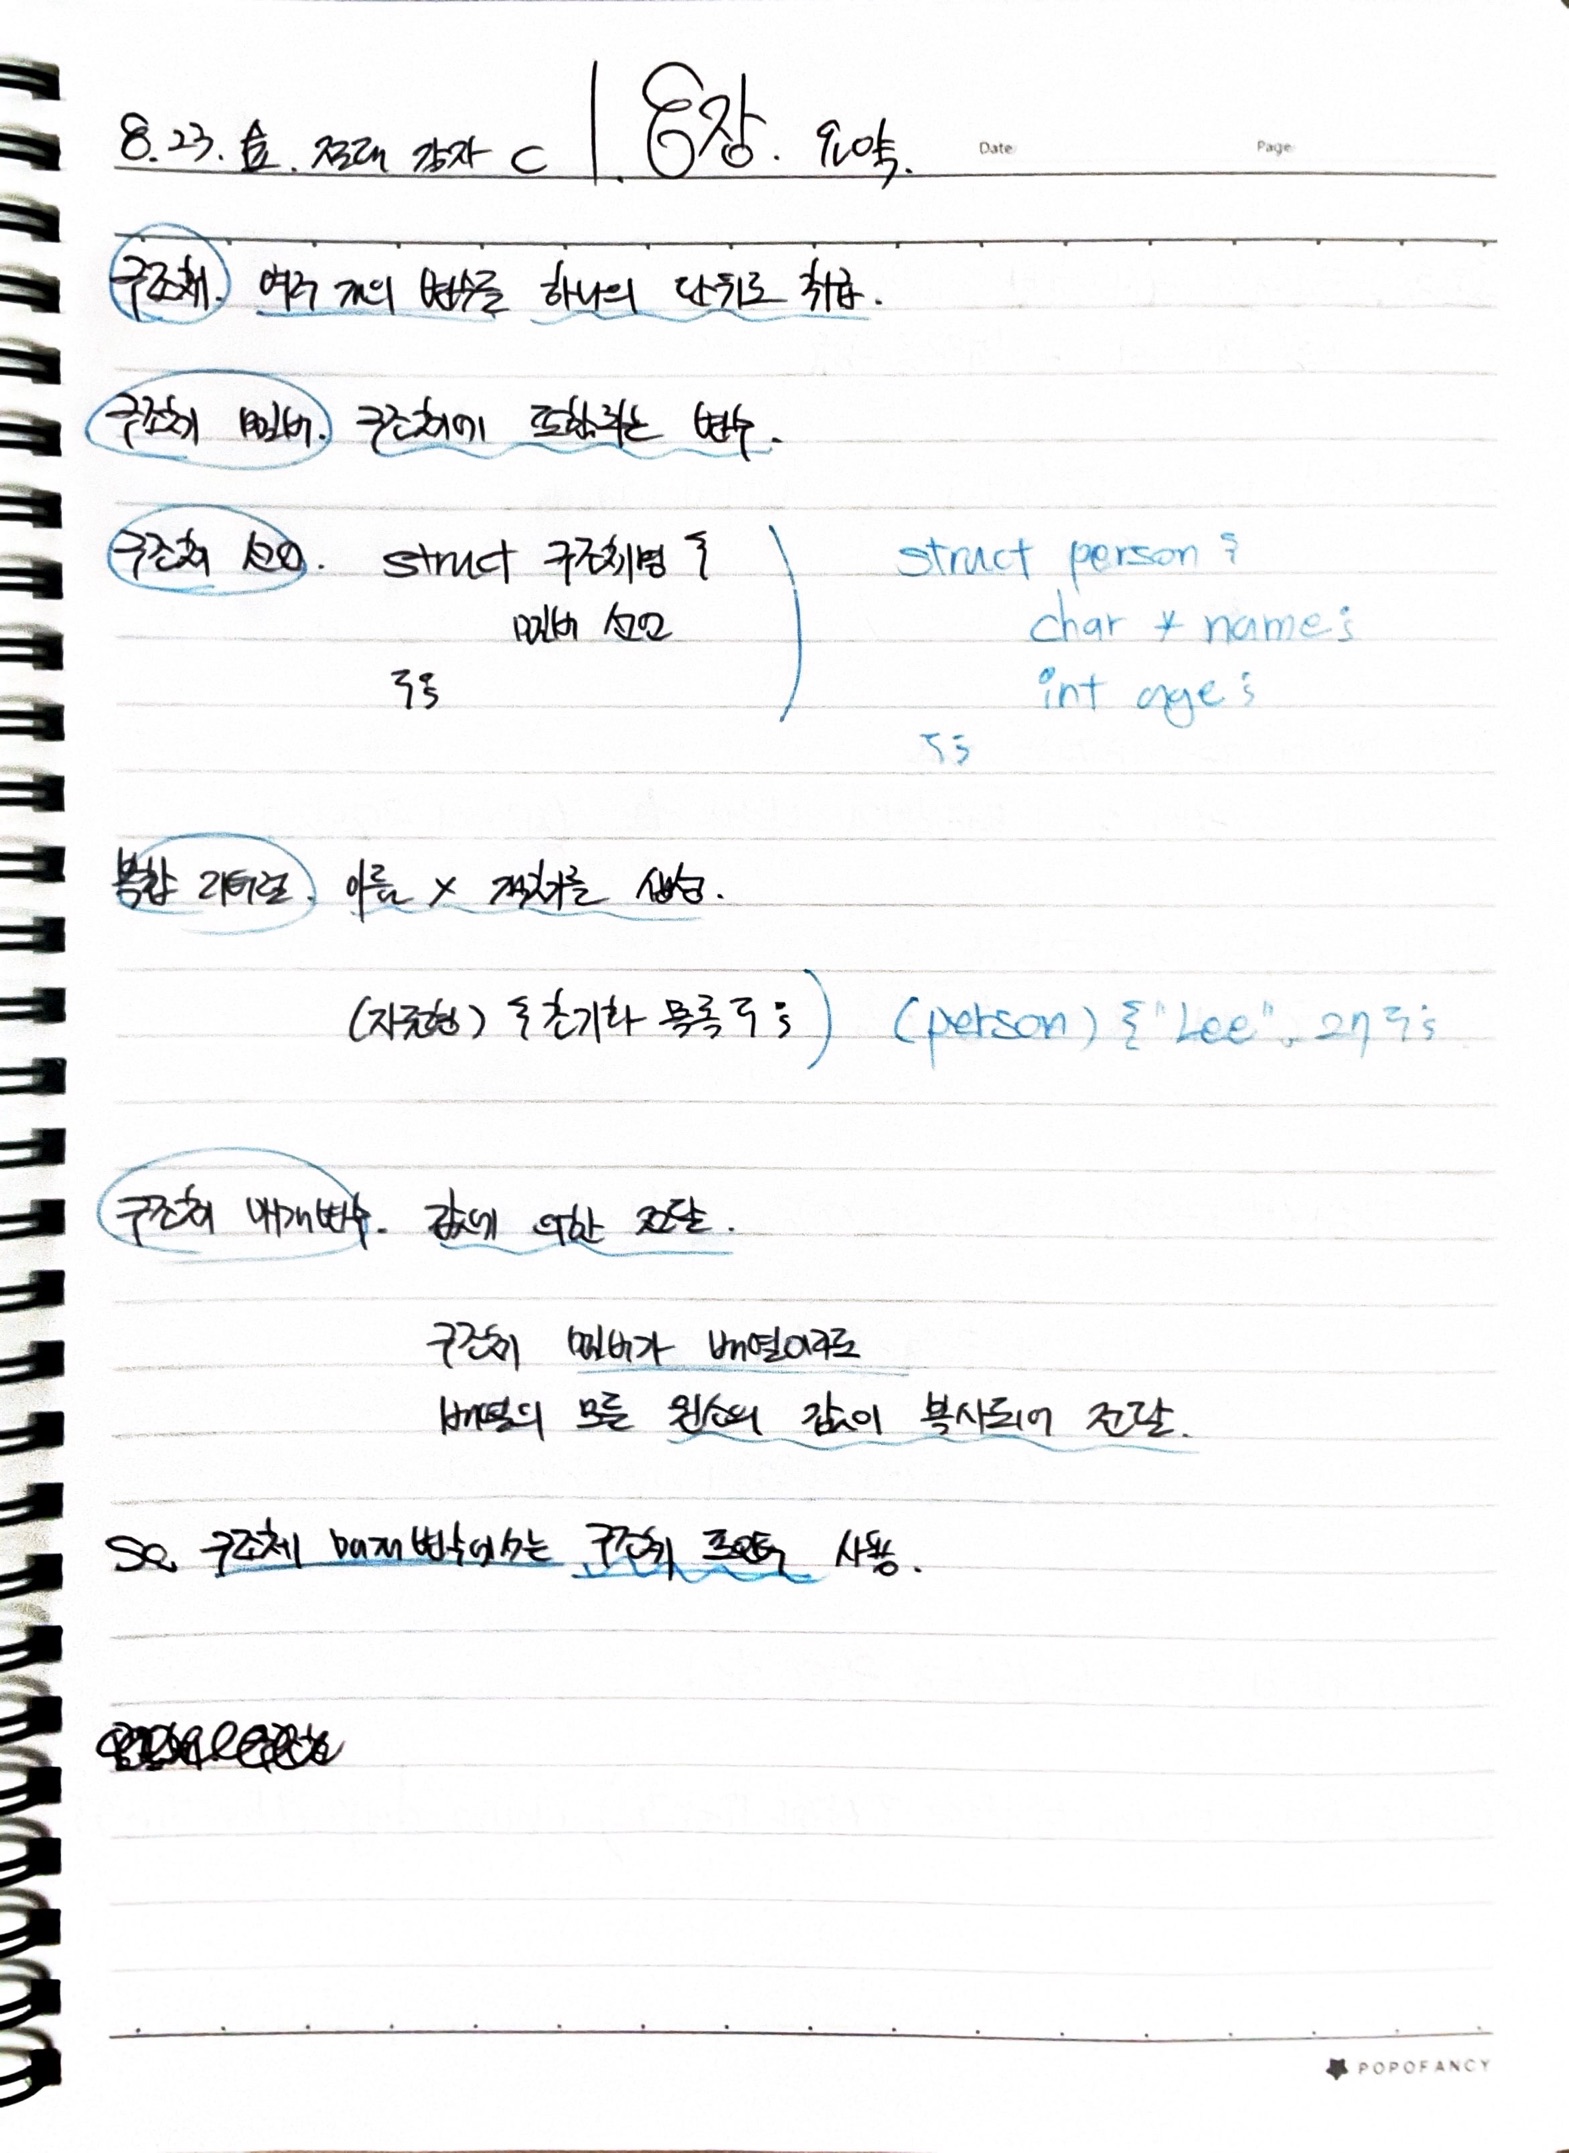 8.23. 금. 전래 감자 C | 6장. 요약.
Date
Page
구조체. 여러 개의 변수를 하나의 단위로 취급.
구조체 멤버. 구조체에 포함되는 변수.
구조체 선언. struct 구조체명 {
멤버 선언
};
struct person {
char * name;
int age;
};
복합 리터럴. 이름 x 객체를 생성.
(자료형) { 초기화 목록 };
(person) {"Lee", 27};
구조체 매개변수. 값에 의한 전달.
구조체 멤버가 배열이라도
배열의 모든 원소의 값이 복사되어 전달.
So. 구조체 매개변수에서는 구조체 포인터 사용.
POPOFANCY